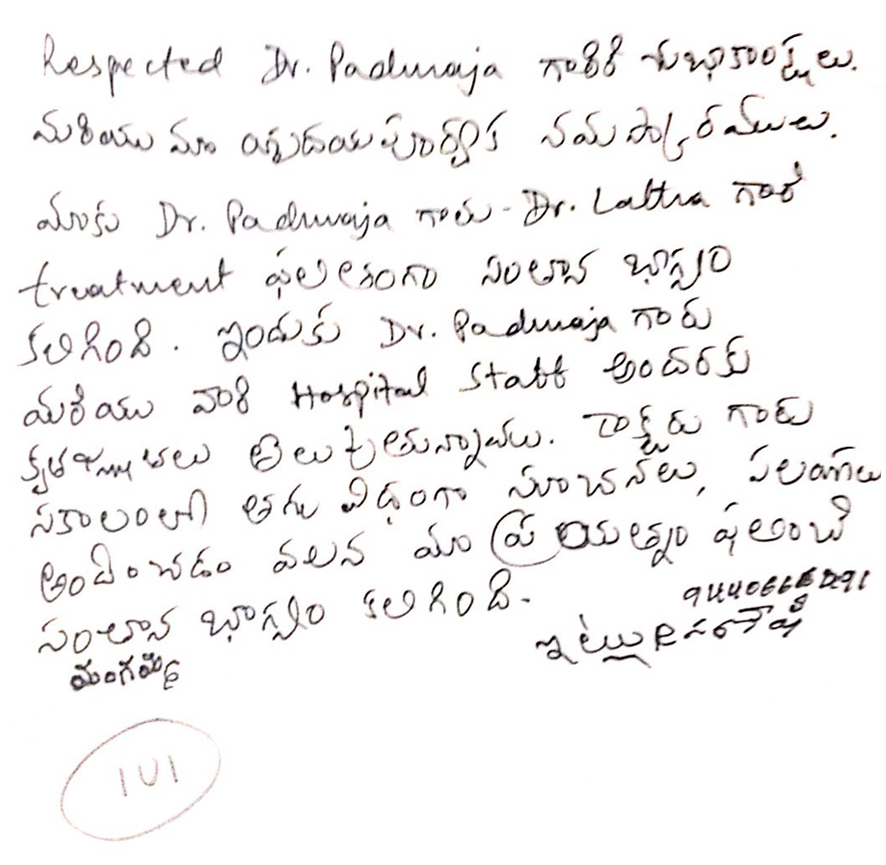 Respected Dr. Padmaja గారికి శుభాకాంక్షలు.
మరియు మా హృదయపూర్వక నమస్కారములు.
మాకు Dr. Padmaja గారు - Dr. Latha గారి
treatment ఫలితంగా సంతాన భాగ్యం
కలిగింది. ఇందుకు Dr. Padmaja గారు
మరియు వారి Hospital Staff అందరకు
కృతజ్ఞతలు తెలుపుతున్నాము. డాక్టరు గారు
సకాలంలో తగు విధంగా సూచనలు, సలహాలు
అందించడం వలన మా ప్రయత్నం ఫలించి
సంతాన భాగ్యం కలిగింది.
ఇట్లు
మంగమ్మ